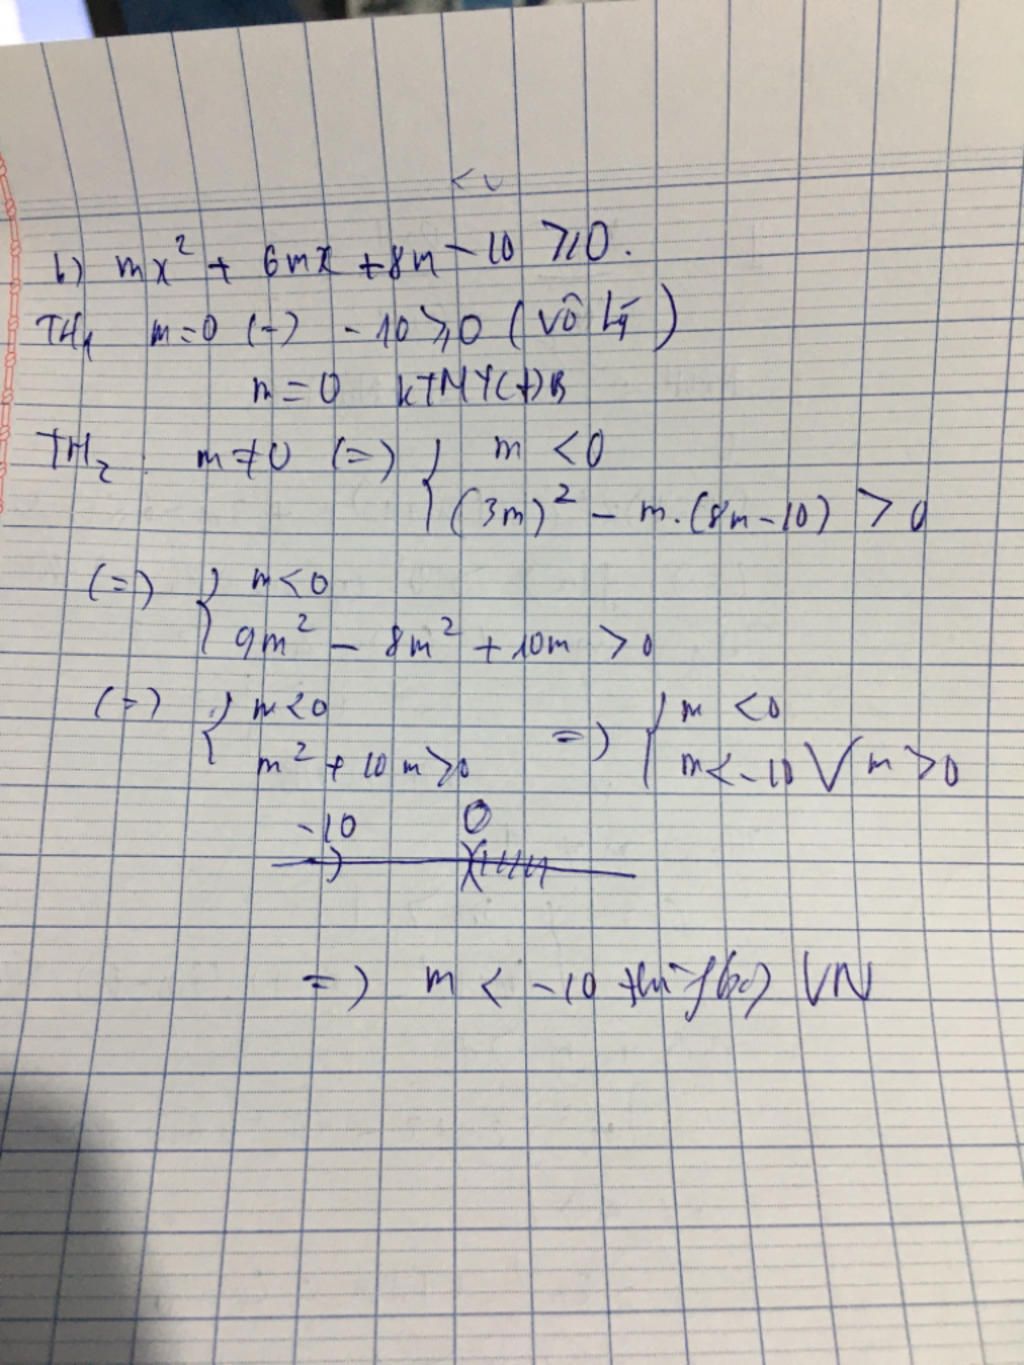 <v
b) mx² + 6mx + 8m - 10 ≥ 0.
TH1 m=0 (=) -10 ≥ 0 (vô lý)
m = 0 KTMYCĐB
TH2 : m ≠ 0 (=) { m < 0
(3m)² - m.(8m-10) > 0
(=) { m < 0
9m² - 8m² + 10m > 0
(=) { m < 0
m² + 10m > 0
=) { m < 0
m < -10 V m > 0
-10 0
=) m < -10 thì f(x) VN